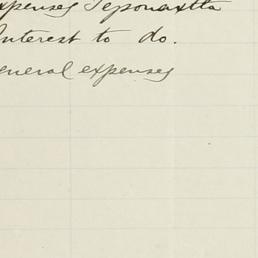 xpenses Teponaxtla
nterest to do.
eneral expenses